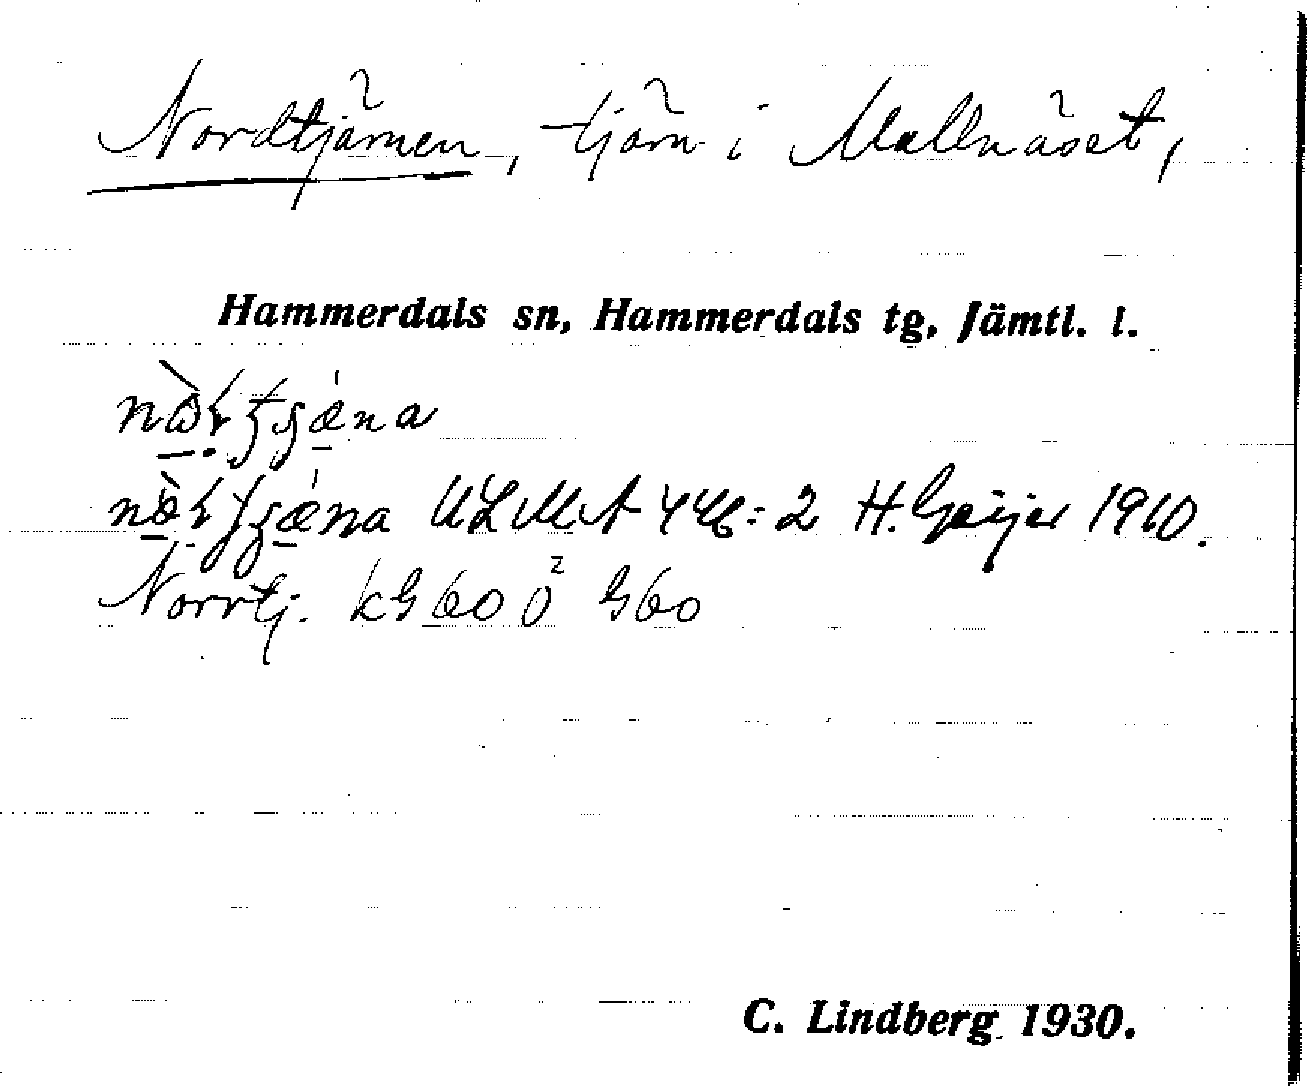 Nordtjärnen, tjärn i Mallnäset,
Hammerdals sn, Hammerdals tg, Jämtl. l.
ULMA 446:2 H. Geijer 1910.
Norrtj. kG 60 Ö² G60
C. Lindberg 1930.